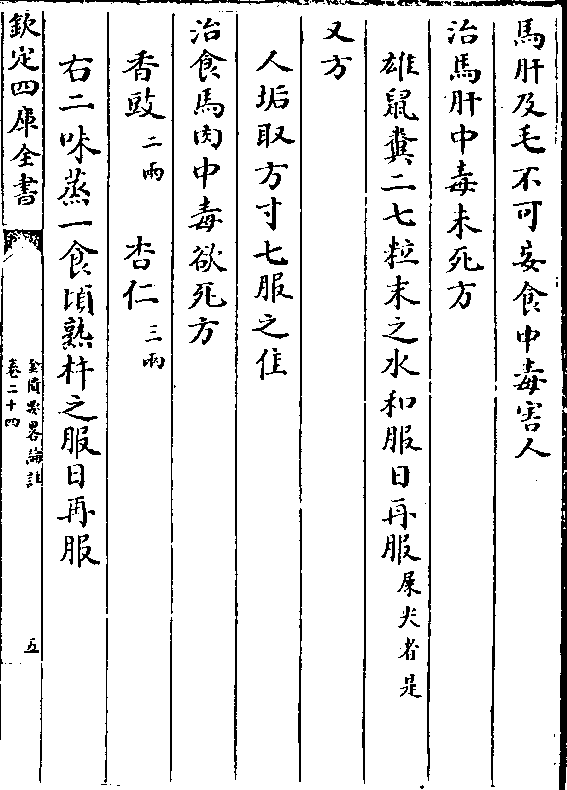 馬肝及毛不可妄食中毒害人
治馬肝中毒未死方
雄鼠糞二七粒末之水和服日再服屎尖者是
又方
人垢取方寸七服之佳
治食馬肉中毒欲死方
香豉二兩 杏仁三兩
右二味蒸一食頃熟杵之服日再服
欽定四庫全書
金匱要略論註
卷二十四
五